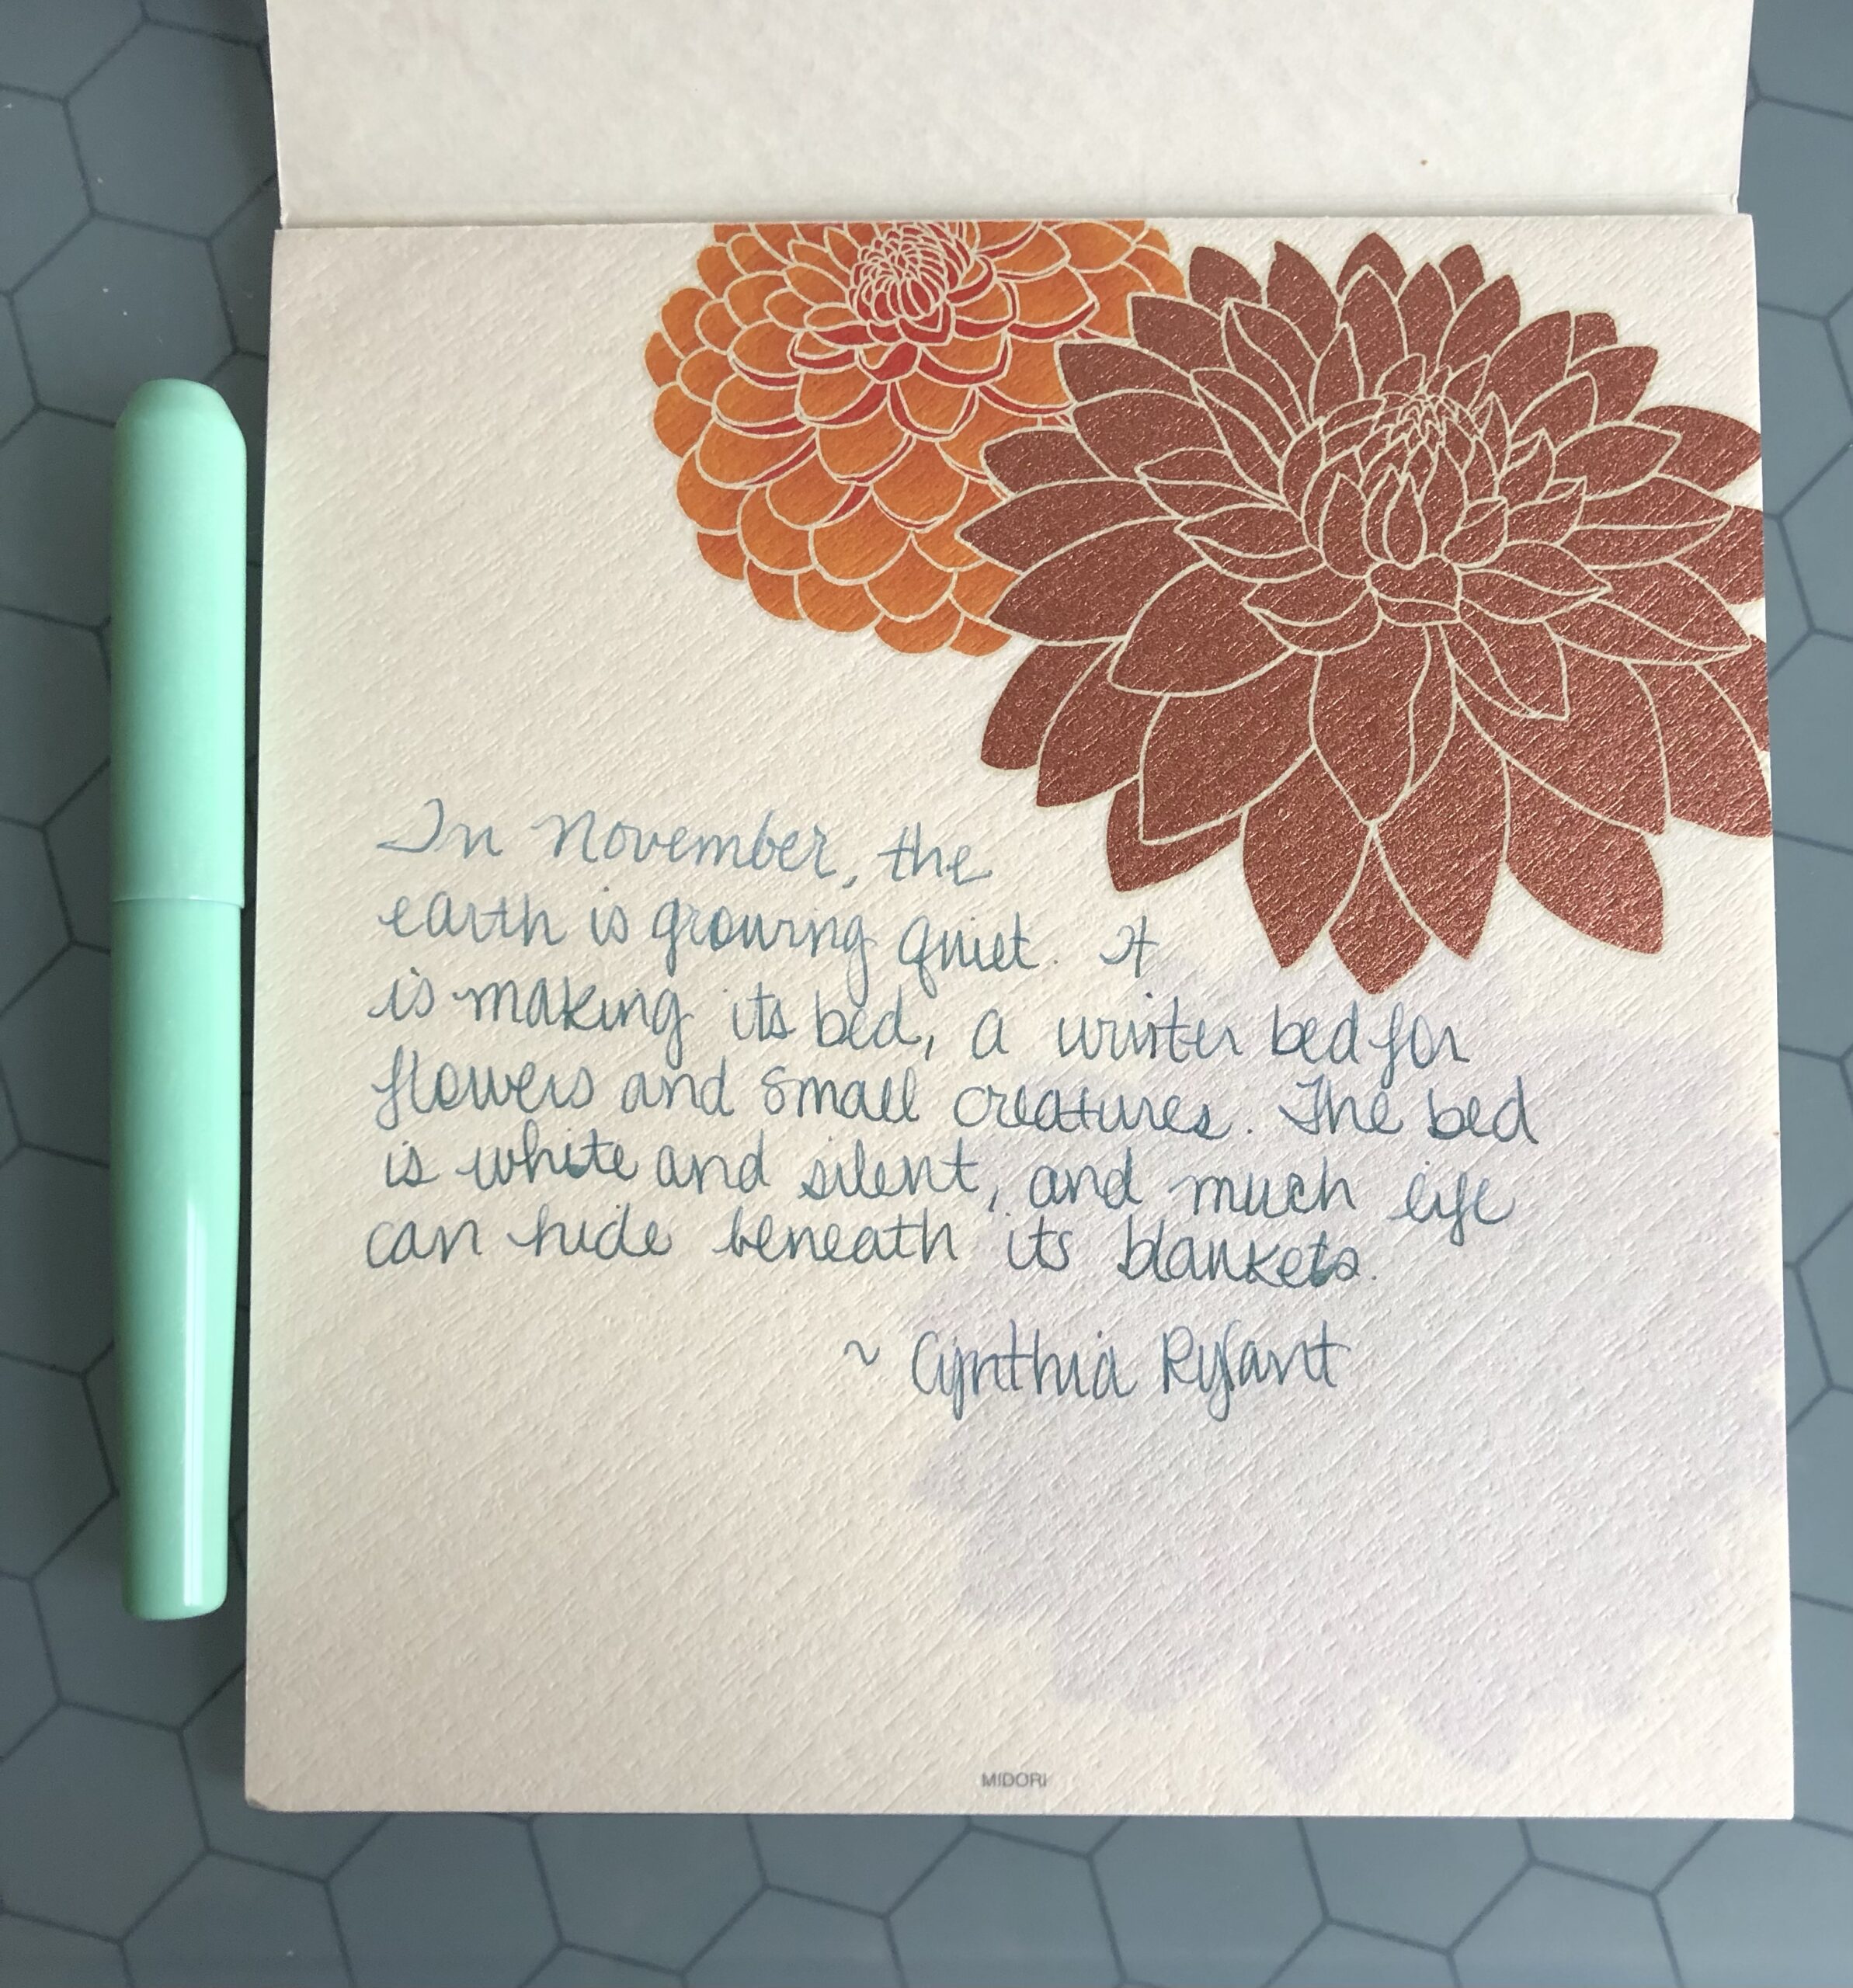 In November, the
earth is growing quiet. It
is making its bed, a winter bed for
flowers and small creatures. The bed
is white and silent, and much life
can hide beneath its blankets.
~ Cynthia Rylant
MIDORI